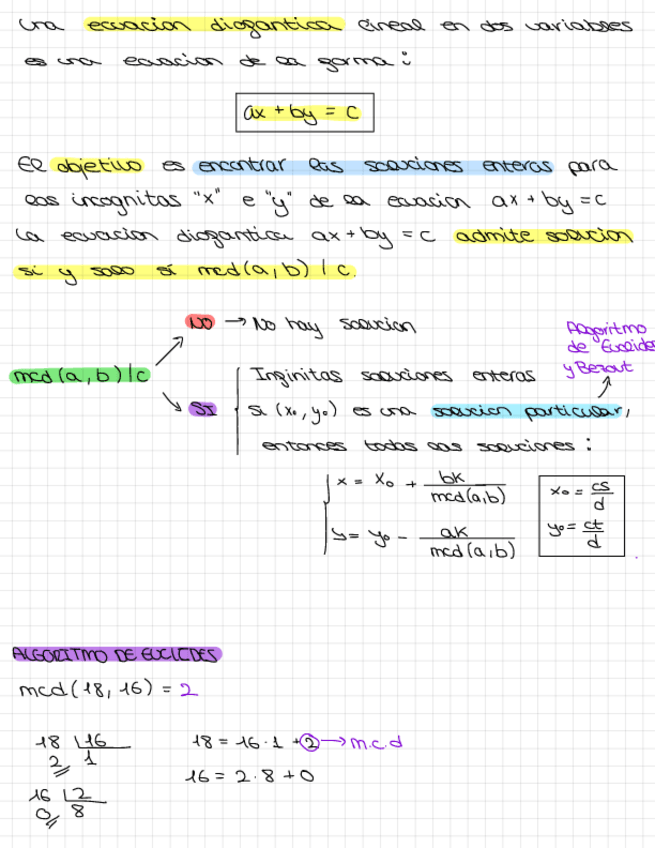 Una ecuacion diofantica lineal en dos variables
es una ecuacion de la forma:
ax + by = c
El objetivo es encontrar las soluciones enteras para
las incognitas "x" e "y" de la ecuacion ax + by = c
La ecuacion diofantica ax + by = c admite solucion
si y solo si mcd(a,b) / c.
NO → No hay solucion
Algoritmo
de Euclides
y Bezout
mcd(a,b)|c
SI
Infinitas soluciones enteras
Si (x₀, y₀) es una solucion particular,
entonces todas las soluciones:
x = x₀ + bk / mcd(a,b)
y = y₀ - ak / mcd(a,b)
x₀ = cs / d
y₀ = ct / d
ALGORITMO DE EUCLIDES
mcd(18, 16) = 2
18 16
2 1
18 = 16 · 1 + 2 → m.c.d
16 = 2 · 8 + 0
16 2
0 8